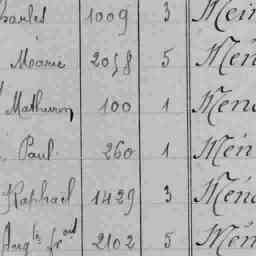 Charles 1009 3 Mén
Marie 2058 5 Mén
Mathurin 100 1 Mén
Paul 260 1 Mén
Raphaël 1429 3 Mén
2102 5 Mén